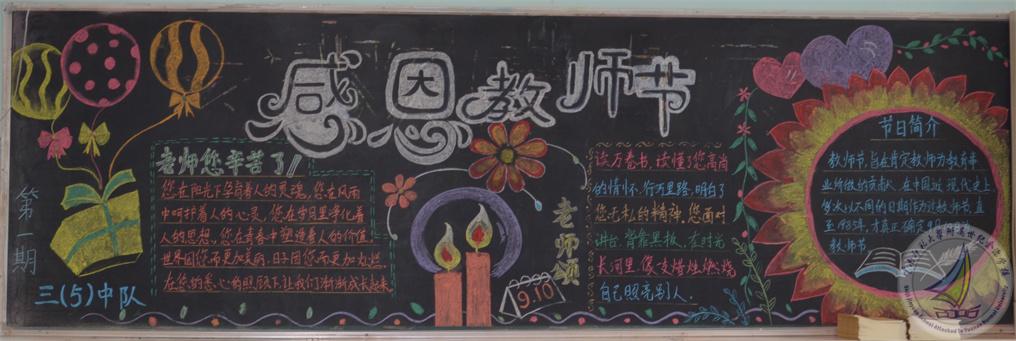 感恩教师节
第一期
三(5)中队
老师您辛苦了!!
您在阳光下孕育着人的灵魂,您在风雨
中呵护着人的心灵,您在学园里净化着
人的思想,您在青春中塑造着人的价值
世界因您而更加美丽,日子因您而更加
在您的悉心的照顾下,让我们渐渐成长起来
9.10
老师颂
读万卷书,读懂了您高尚
的情怀.行万里路,明白了
您无私的精神.您面对
讲台,背靠黑板,在时光
长河里,像支蜡烛燃烧
自己照亮别人.
节日简介
教师节,旨在肯定教师为教育事
业所做的贡献。在中国近、现代史上
多次以不同的日期作为过教师节.直
至1985年,才真正确定9月
教师节